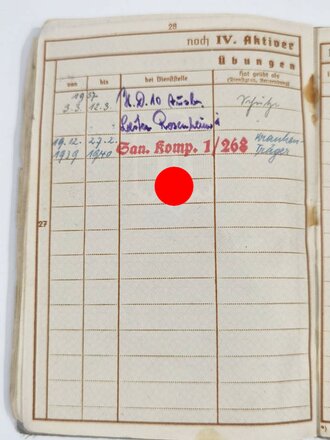 28
noch IV. Aktiver
Übungen
von bis bei Dienststelle Hat geübt als
(Dienstgrad, Verwendung)
1937
3.3. 12.3.
Rosenheim
19.12. 27.2. San. Komp. 1/268 Kranken-
1939 1940 träger
27